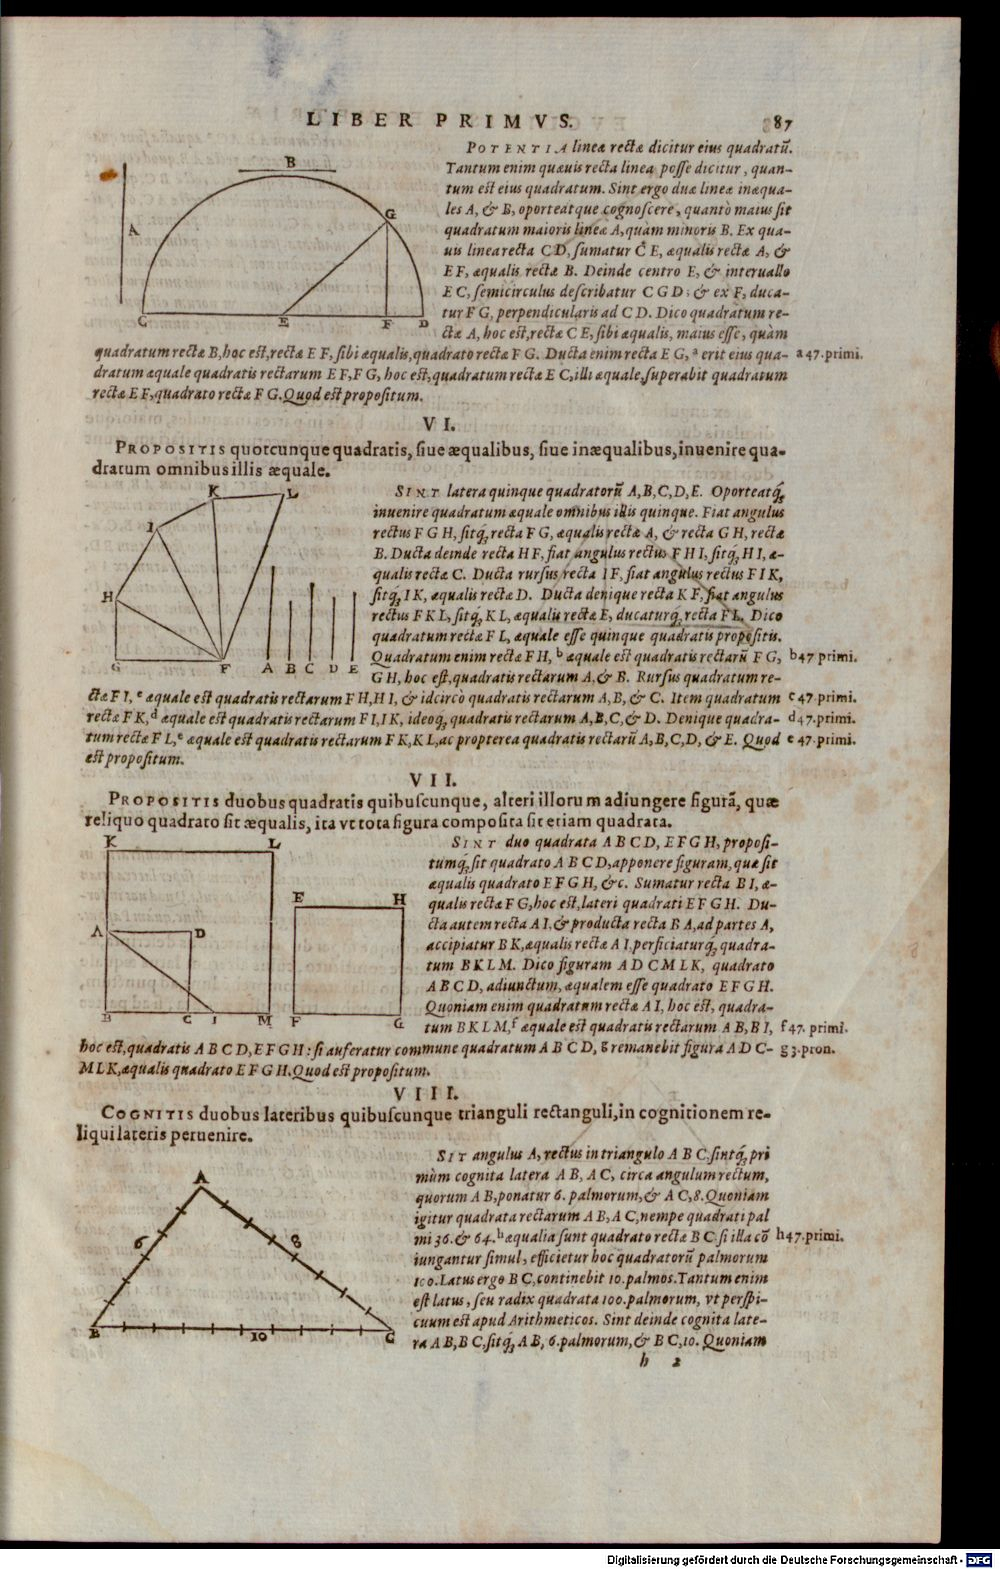 LIBER PRIMVS. 87
POTENTIA lineæ rectæ dicitur eius quadratũ.
Tantum enim quæuis recta linea posse dicitur, quan-
tum est eius quadratum. Sint ergo duæ lineæ inæqua-
les A, & B, oporteatque cognoscere, quantò maius sit
quadratum maioris lineæ A, quàm minoris B. Ex qua-
uis linea recta C D, sumatur C E, æqualis rectæ A, &
E F, æqualis rectæ B. Deinde centro E, & interuallo
E C, semicirculus describatur C G D; & ex F, duca-
tur F G, perpendicularis ad C D. Dico quadratum re-
ctæ A, hoc est, rectæ C E, sibi æqualis, maius esse, quàm
quadratum rectæ B, hoc est, rectæ E F, sibi æqualis, quadrato rectæ F G. Ducta enim recta E G, ª erit eius qua- a 47. primi.
dratum æquale quadratis rectarum E F, F G, hoc est, quadratum rectæ E C, illi æquale, superabit quadratum
rectæ E F, quadrato rectæ F G. Quod est propositum.
B
A
G
C E F D
VI.
PROPOSITIS quotcunque quadratis, siue æqualibus, siue inæqualibus, inuenire qua-
dratum omnibus illis æquale.
K L
I
H
G F A B C D E
SINT latera quinque quadratorũ A, B, C, D, E. Oporteatq́;
inuenire quadratum æquale omnibus illis quinque. Fiat angulus
rectus F G H, sitq́; recta F G, æqualis rectæ A, & recta G H, rectæ
B. Ducta deinde recta H F, fiat angulus rectus F H I, sitq́; H I, æ-
qualis rectæ C. Ducta rursus recta I F, fiat angulus rectus F I K,
sitq́; I K, æqualis rectæ D. Ducta denique recta K F, fiat angulus
rectus F K L, sitq́; K L, æqualis rectæ E, ducaturq́; recta F L. Dico
quadratum rectæ F L, æquale esse quinque quadratis propositis.
Quadratum enim rectæ F H, ᵇ æquale est quadratis rectarũ F G, b 47 primi.
G H, hoc est, quadratis rectarum A, & B. Rursus quadratum re-
ctæ F I, ᶜ æquale est quadratis rectarum F H, H I, & idcircò quadratis rectarum A, B, & C. Item quadratum c 47. primi.
rectæ F K, ᵈ æquale est quadratis rectarum F I, I K, ideoq́; quadratis rectarum A, B, C, & D. Denique quadra- d 47. primi.
tum rectæ F L, ᵉ æquale est quadratis rectarum F K, K L, ac propterea quadratis rectarũ A, B, C, D, & E. Quod e 47. primi.
est propositum.
VII.
PROPOSITIS duobus quadratis quibuscunque, alteri illorum adiungere figurã, quæ
reliquo quadrato sit æqualis, ita vt tota figura composita sit etiam quadrata.
K L
E H
A D
B C I M F G
SINT duo quadrata A B C D, E F G H, proposi-
tumq́; sit quadrato A B C D, apponere figuram, quæ sit
æqualis quadrato E F G H, &c. Sumatur recta B I, æ-
qualis rectæ F G, hoc est, lateri quadrati E F G H. Du-
cta autem recta A I, & producta recta B A, ad partes A,
accipiatur B K, æqualis rectæ A I, perficiaturq́; quadra-
tum B K L M. Dico figuram A D C M L K, quadrato
A B C D, adiunctum, æqualem esse quadrato E F G H.
Quoniam enim quadratum rectæ A I, hoc est, quadra-
tum B K L M, ᶠ æquale est quadratis rectarum A B, B I, f 47. primi.
hoc est, quadratis A B C D, E F G H: si auferatur commune quadratum A B C D, ᵍ remanebit figura A D C- g 3. pron.
M L K, æqualis quadrato E F G H. Quod est propositum.
VIII.
COGNITIS duobus lateribus quibuscunque trianguli rectanguli, in cognitionem re-
liqui lateris peruenire.
A
6 8
B 10 C
SIT angulus A, rectus in triangulo A B C. sintq́; pri
mùm cognita latera A B, A C, circa angulum rectum,
quorum A B, ponatur 6. palmorum, & A C, 8. Quoniam
igitur quadrata rectarum A B, A C, nempe quadrati pal
mi 36. & 64. ʰ æqualia sunt quadrato rectæ B C. si illa cõ h 47. primi.
iungantur simul, efficietur hoc quadratorũ palmorum
100. Latus ergo B C, continebit 10. palmos. Tantum enim
est latus, seu radix quadrata 100. palmorum, vt perspi-
cuum est apud Arithmeticos. Sint deinde cognita late-
ra A B, B C, sitq́; A B, 6. palmorum, & B C, 10. Quoniam
h 2
Digitalisierung gefördert durch die Deutsche Forschungsgemeinschaft - DFG